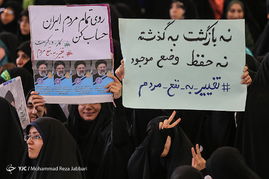 روی تمام مردم ایران
حساب کن
نه بازگشت به گذشته
نه حفظ وضع موجود
#تغییر_به_نفع_مردم
YJC
Mohammad Reza Jabbari